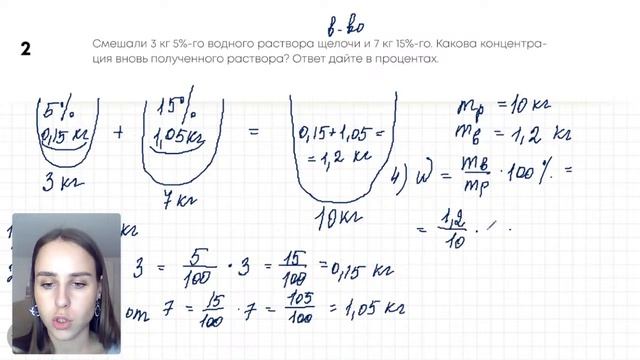 в-во
2
Смешали 3 кг 5%-го водного раствора щелочи и 7 кг 15%-го. Какова концентра-
ция вновь полученного раствора? Ответ дайте в процентах.
5% 15%
0,15 кг + 1,05 кг = 0,15 + 1,05 =
= 1,2 кг
3 кг 7 кг 10 кг
mр = 10 кг
mв = 1,2 кг
4) W = mв/mр · 100% =
= 1,2/10 ·
кг
3 = 5/100 · 3 = 15/100 = 0,15 кг
от 7 = 15/100 · 7 = 105/100 = 1,05 кг